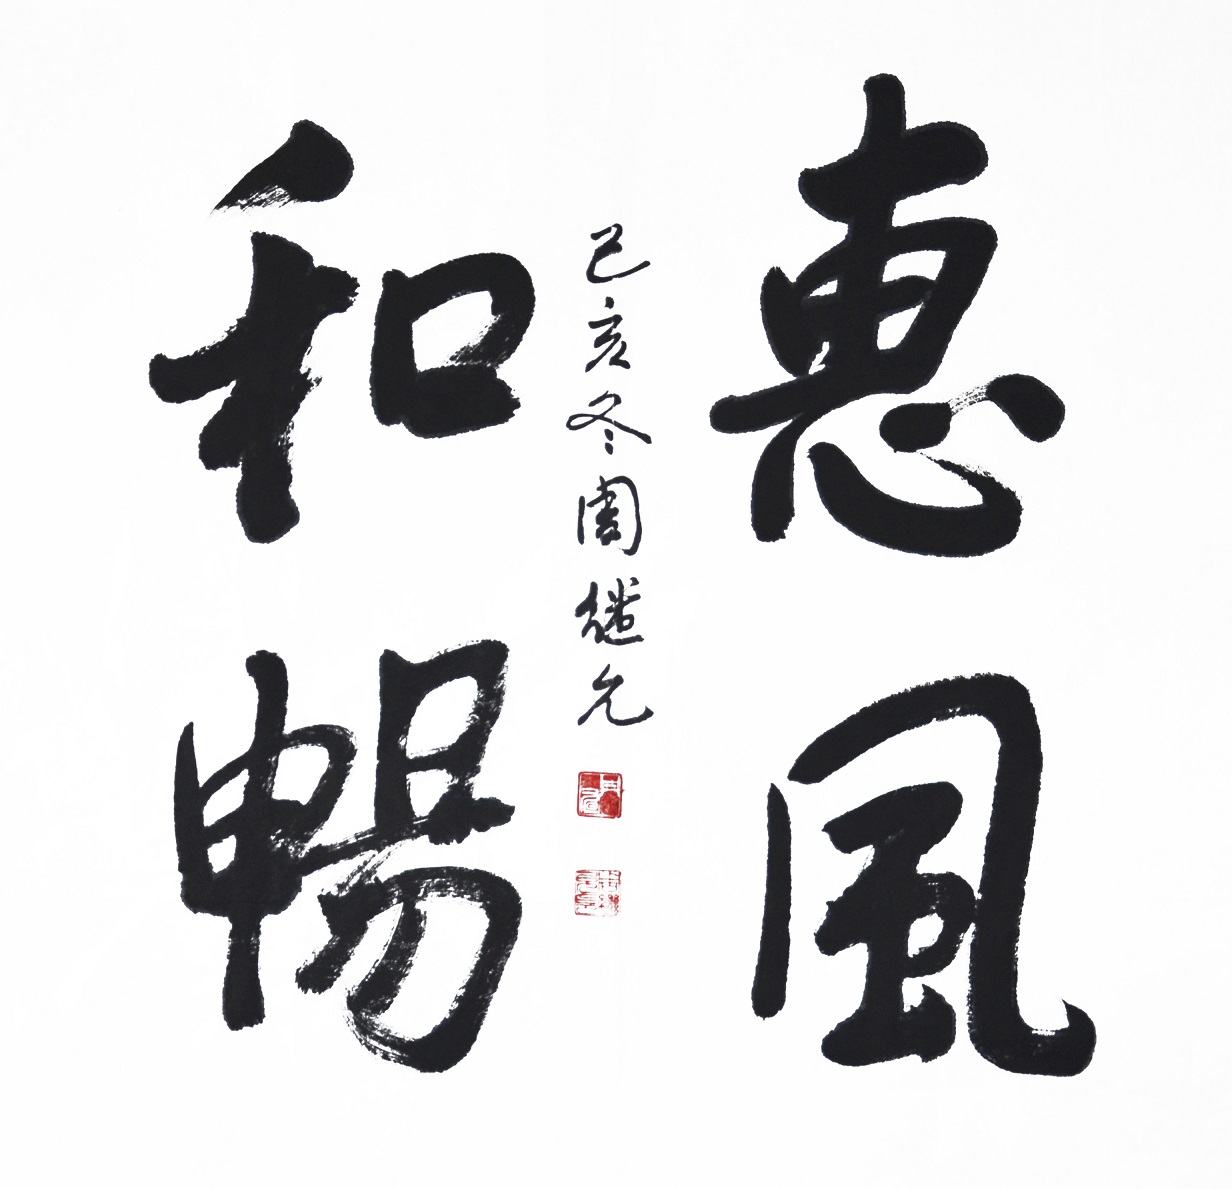 惠風
和暢
己亥冬周继允